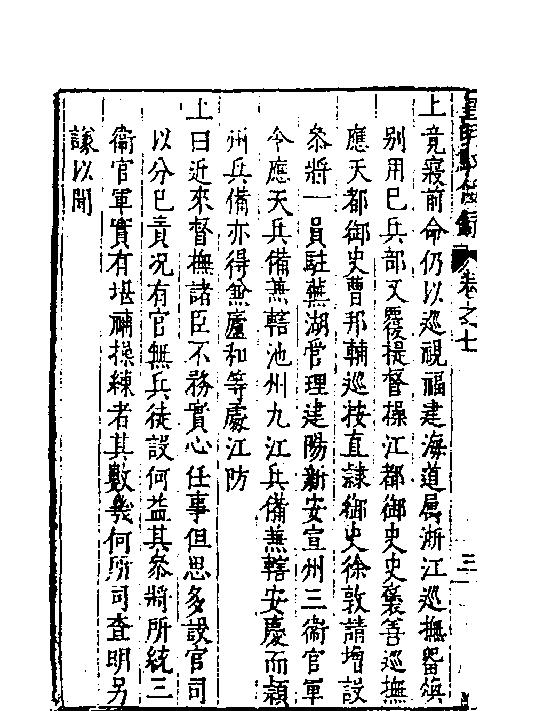 卷之七
三
上竟寢前命仍以巡視福建海道属浙江巡撫畱
別用已兵部又覆提督操江都御史史褒善巡撫
應天都御史曹邦輔巡按直隷御史徐敦請增設
叅將一員駐蕪湖管理建陽新安宣州三衛官軍
令應天兵備兼轄池州九江兵備兼轄安慶而潁
州兵備亦得兼廬和等處江防
上曰近來督撫諸臣不務實心任事但思多設官司
以分已責况有官無兵徒設何益其叅將所統三
衛官軍實有堪禆操練者其數幾何所司查明另
議以聞